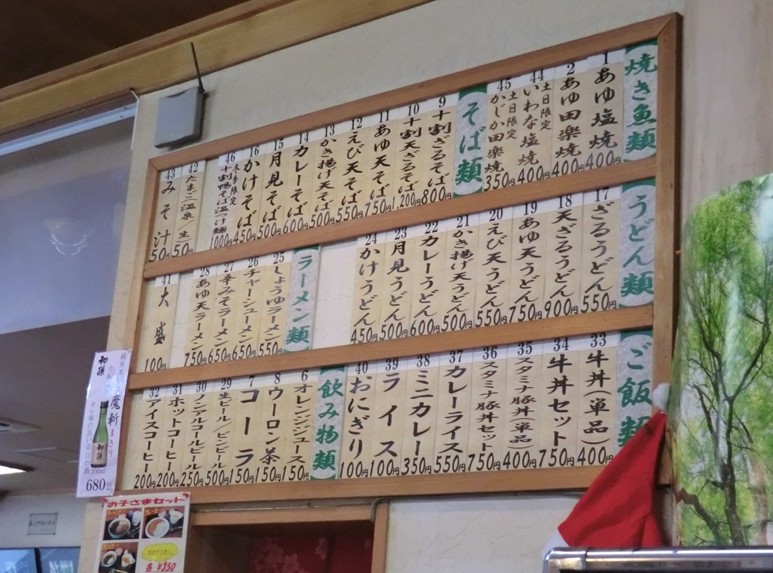 焼き魚類
1 あゆ塩焼 400
2 あゆ田楽焼 400
44 土日限定 いわな塩焼 400
45 土日限定 かじか田楽焼 350
そば類
9 十割ざるそば 800
10 十割天ざるそば 1,200
11 あゆ天そば 750
12 えび天そば 550
13 かき揚げ天そば 500
14 カレーそば 600
15 月見そば 500
16 かけそば 450
46 十割鴨そば 温つけ麺 1000
42 たまご 温泉 生 50
43 みそ汁 50
うどん類
17 ざるうどん 550
18 天ざるうどん 900
19 あゆ天うどん 750
20 えび天うどん 550
21 かき揚げ天うどん 500
22 カレーうどん 600
23 月見うどん 500
24 かけうどん 450
ラーメン類
25 しょうゆラーメン 550
26 チャーシューメン 650
27 辛みそラーメン 650
28 あゆ天ラーメン 750
41 大盛 100
ご飯類
33 牛丼(単品) 400
34 牛丼セット 750
35 スタミナ豚丼(単品) 400
36 スタミナ豚丼セット 750
37 カレーライス 550
38 ミニカレー 350
39 ライス 100
40 おにぎり 100
飲み物類
6 オレンジジュース 150円
8 ウーロン茶 150円
7 コーラ 150円
29 生ビール/ビンビール 500円
30 ノンアルコールビール 250円
31 ホットコーヒー 200円
32 アイスコーヒー 200円
初孫
魔斬
680
お子さまセット
各 ¥350